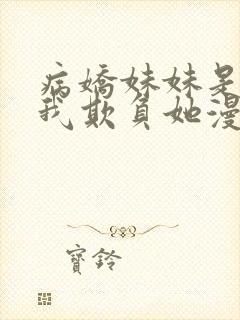 病嬌妹妹是
我欺負她漫
寶鈴